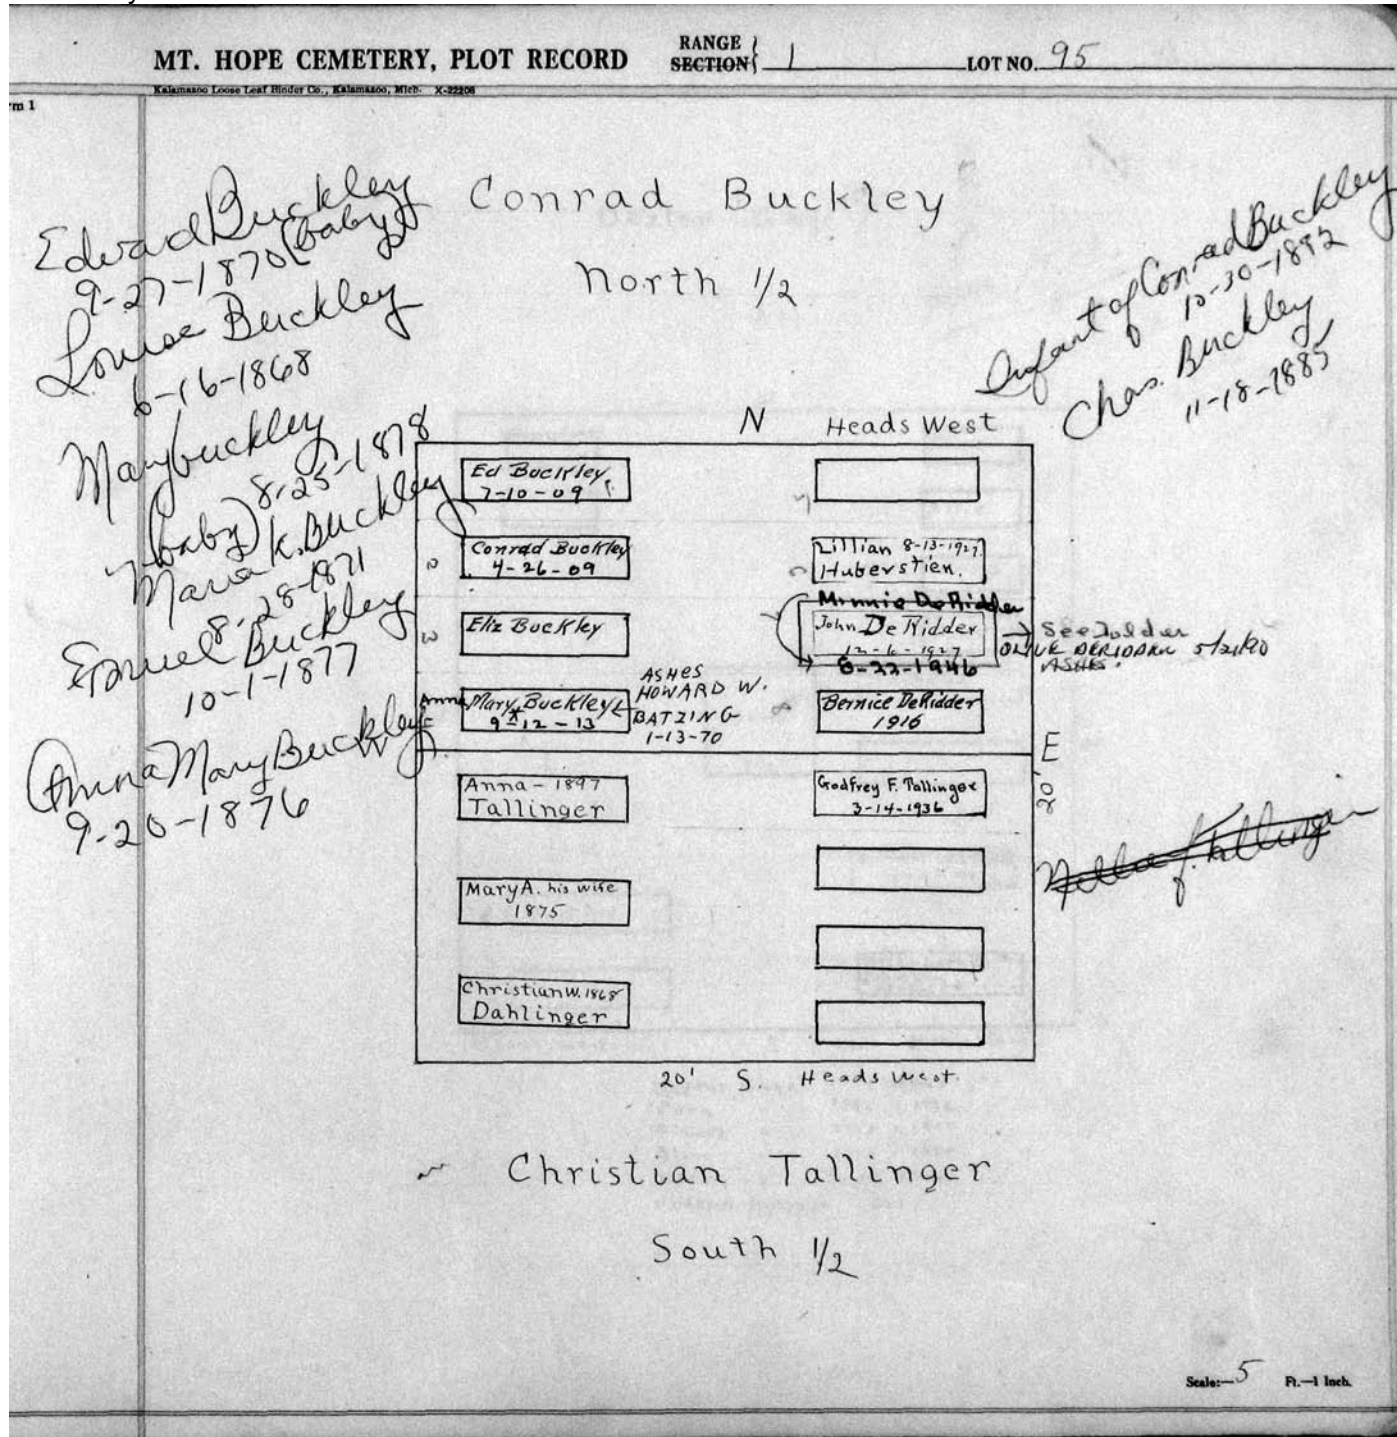 MT. HOPE CEMETERY, PLOT RECORD
RANGE
SECTION
1
LOT NO. 95
Kalamazoo Loose Leaf Binder Co., Kalamazoo, Mich. X-22206
m 1
Conrad Buckley
North 1/2
Edward Buckley
9-27-1870 (baby)
Louise Buckley
6-16-1868
Mary buckley
(baby) 8-25-1878
Maria K. Buckley
8-28-1871
Buckley
10-1-1877
Anna Mary Buckley
9-20-1876
Infant of Conrad Buckley
10-30-1892
Chas. Buckley
11-18-1885
N Heads West
Ed Buckley
7-10-09
Conrad Buckley
4-26-09
Eliz Buckley
Anna Mary Buckley
9-12-13
ASHES
HOWARD W.
BATZING
1-13-70
Lillian 8-13-1927.
Huberstien.
Minnie DeRidder
John De Ridder
12-6-1927
8-22-1946
See Folder
OLIVE 5/21/90
ASHES.
Bernice DeRidder
1916
E
20'
Anna - 1897
Tallinger
Godfrey F. Tallinger
3-14-1936
Mary A. his wife
1875
Nellie J. Tallinger
Christian W. 1868
Dahlinger
20' S. Heads West.
Christian Tallinger
South 1/2
Scale:—5 Ft.—1 Inch.